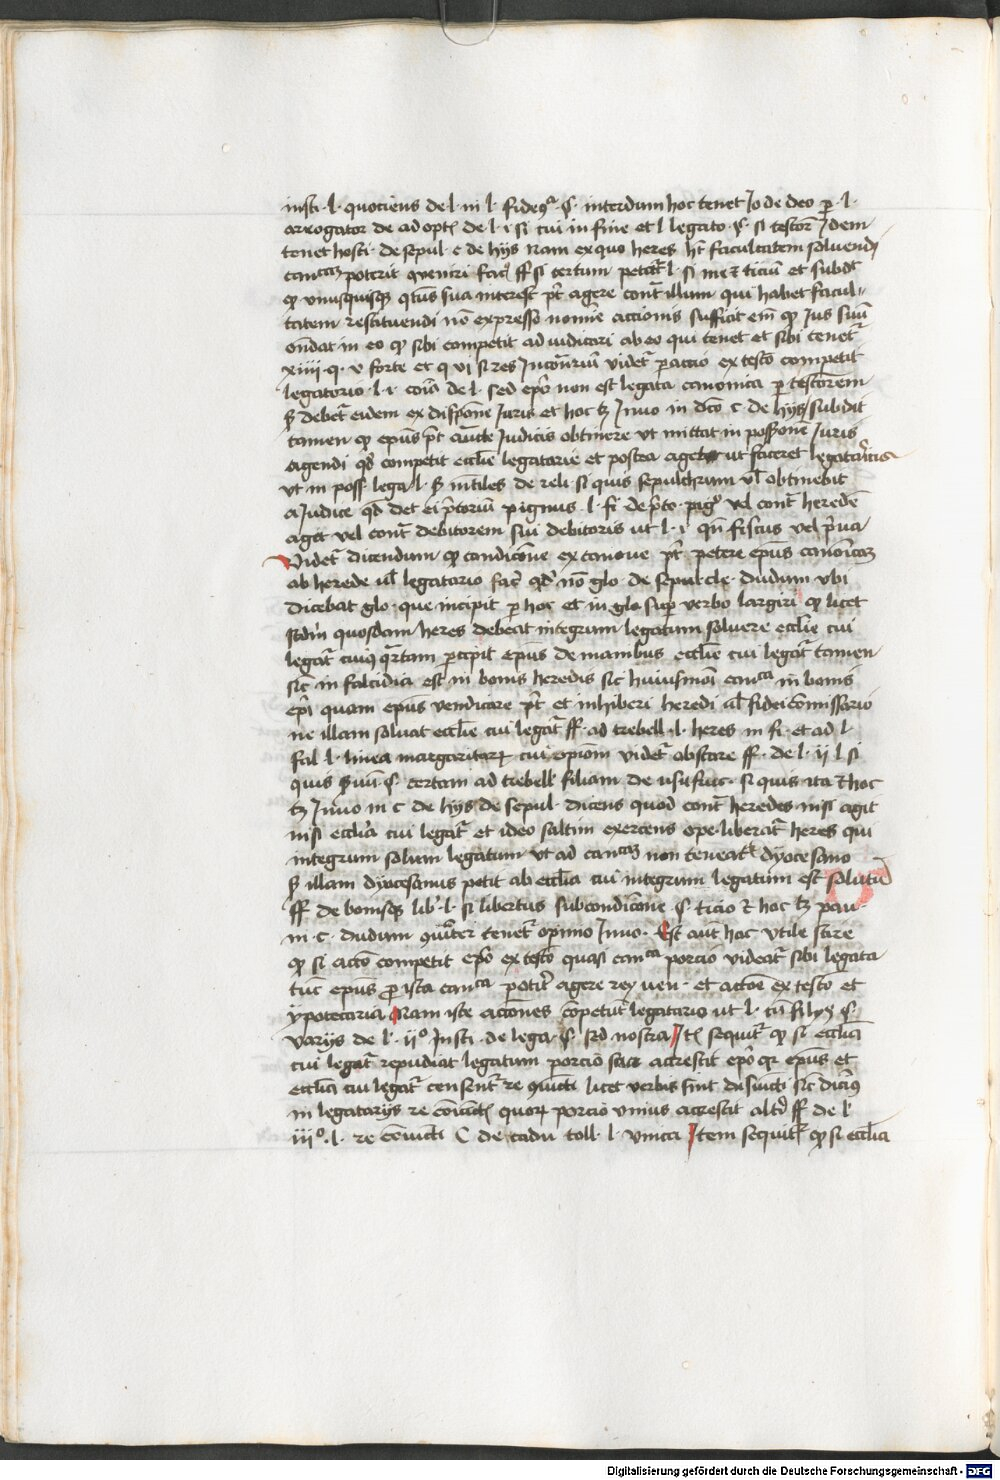 insti. l. quociens de l. iii l. fideiꝯ. §. interdum hoc tenet Jo de deo p. l.
arrogator de adopt. de l. i si cui in fine et l legato. §. si testor Jdem
tenet hosti. de sepul. c de hijs Nam ex quo heres ht facultatem soluendi
canᶜᵃᵐ poterit ꝯueniri ff si certum petatr l. si me ⁊ ticiū et subdt
ꝙ vnusquisqꝫ qtus sua interest pt agere contͣ illum qui habet facul-
tatem restituendi nō expresso nomīe accionis sufficit em ꝙ Jus suū
ondat in eo ꝙ sibi competit adiudicari ab eo qui tenet et sibi tenetr
xiiii. q. v forte et q vi si res Jn videtr actio ex testo competit
legatorio l. i. coīa de l. sed epō non est legata canonica p testorem
ꝫ debetr eidem ex disponē Juris et hoc tꝫ Jnno in dco c. de hijs subdit
tamen ꝙ epūs pt aucte Judicis obtinere vt mittat in possonē Juris
agendi qd competit ecclie legatarie et postea aget ut faceret legatarius
vt in poss lega l. ꝫ de reli si quis sepulchrum vl obtinebit
a Judice qd det ei ptorium pignus. l. fi de pto. pigͦ vel contͣ heredē
agit vel contͣ debitorem sui debitoris ut l. i. qn fiscus vel pua
Videtr dicendum ꝙ condicione ex canone pt petere epūs canonicā
ab herede ul legatorio facͭ qd nō glo. de sepul cle. dudum vbi
dicebat glo. que incipit p hoc et in glo sup verbo largiri ꝙ licet
scdm quosdam heres debeat integrum legatum soluere ecclie cui
legatr cuiꝯ qrtam pcipit epūs de manibus ecclie cui legatr tamen
sic in falcidia est in bonis heredis sic huiusmōi canᶜᵃ in bonis
epi quam epūs vendicare pt et inhiberi heredi ul fideicōmissorio
ne illam soluat ecclie cui legatr ff. ad trebell. l. heres in fi. et ad l.
fal l. linea margaritarꝫ cui opiom videtr obstare ff. de l. ij l si
quis §. certam ad trebell filiam de usufruc. si quis ita ⁊ hoc
tꝫ Jnno in c de hijs de sepul. dicens quod contͣ heredes nisi agit
nisi ecclia cui legatr et ideo saltim exercens ope. liberatr heres qui
integrum soluit legatum vt ad canᶜᵃᵐ non teneatr dyocesano
ꝫ illam dyocesanus petit ab ecclia cui integrum legatum est solutū
ff de bonisqꝫ lib. l. si libertus sub condicione §. ticio ⁊ hoc tꝫ pau.
in c. dudum tenetr Jnno. Est aut hoc vtile scire
ꝙ si actio competit epō ex testo quasi canᶜᵃ porcio videatr sibi legata
tuc epūs p ista canᶜᵃ potit agere rey uen. et actoē ex testo et
ypotecaria Nam iste acciones cōpetutr legatario ut l. cū filijs §.
varijs de l. ijͦ Jnsti. de lega. §. sed nostra Jtꝫ sequitr ꝙ si ecclia
cui legatr repudiat legatum porcio sua accrescit epō qr epūs et
ecclia cui legatr censentr re ꝯiucti licet verbis sint disiucti sic dicimꝯ
in legatarijs re cōiuctis quorꝫ porcio vnius accrescit altri ff de l
iijͦ. l. re cōiucti C de cadu toll. l. vnica Jtem sequitr ꝙ si ecclia
Digitalisierung gefördert durch die Deutsche Forschungsgemeinschaft - DFG